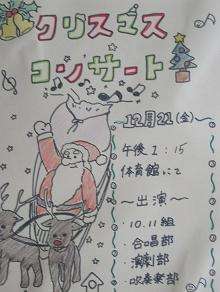 クリスマス
コンサート
12月21(金)
午後1:15
体育館にて
〜出演〜
・10.11組
・合唱部
・演劇部
・吹奏楽部